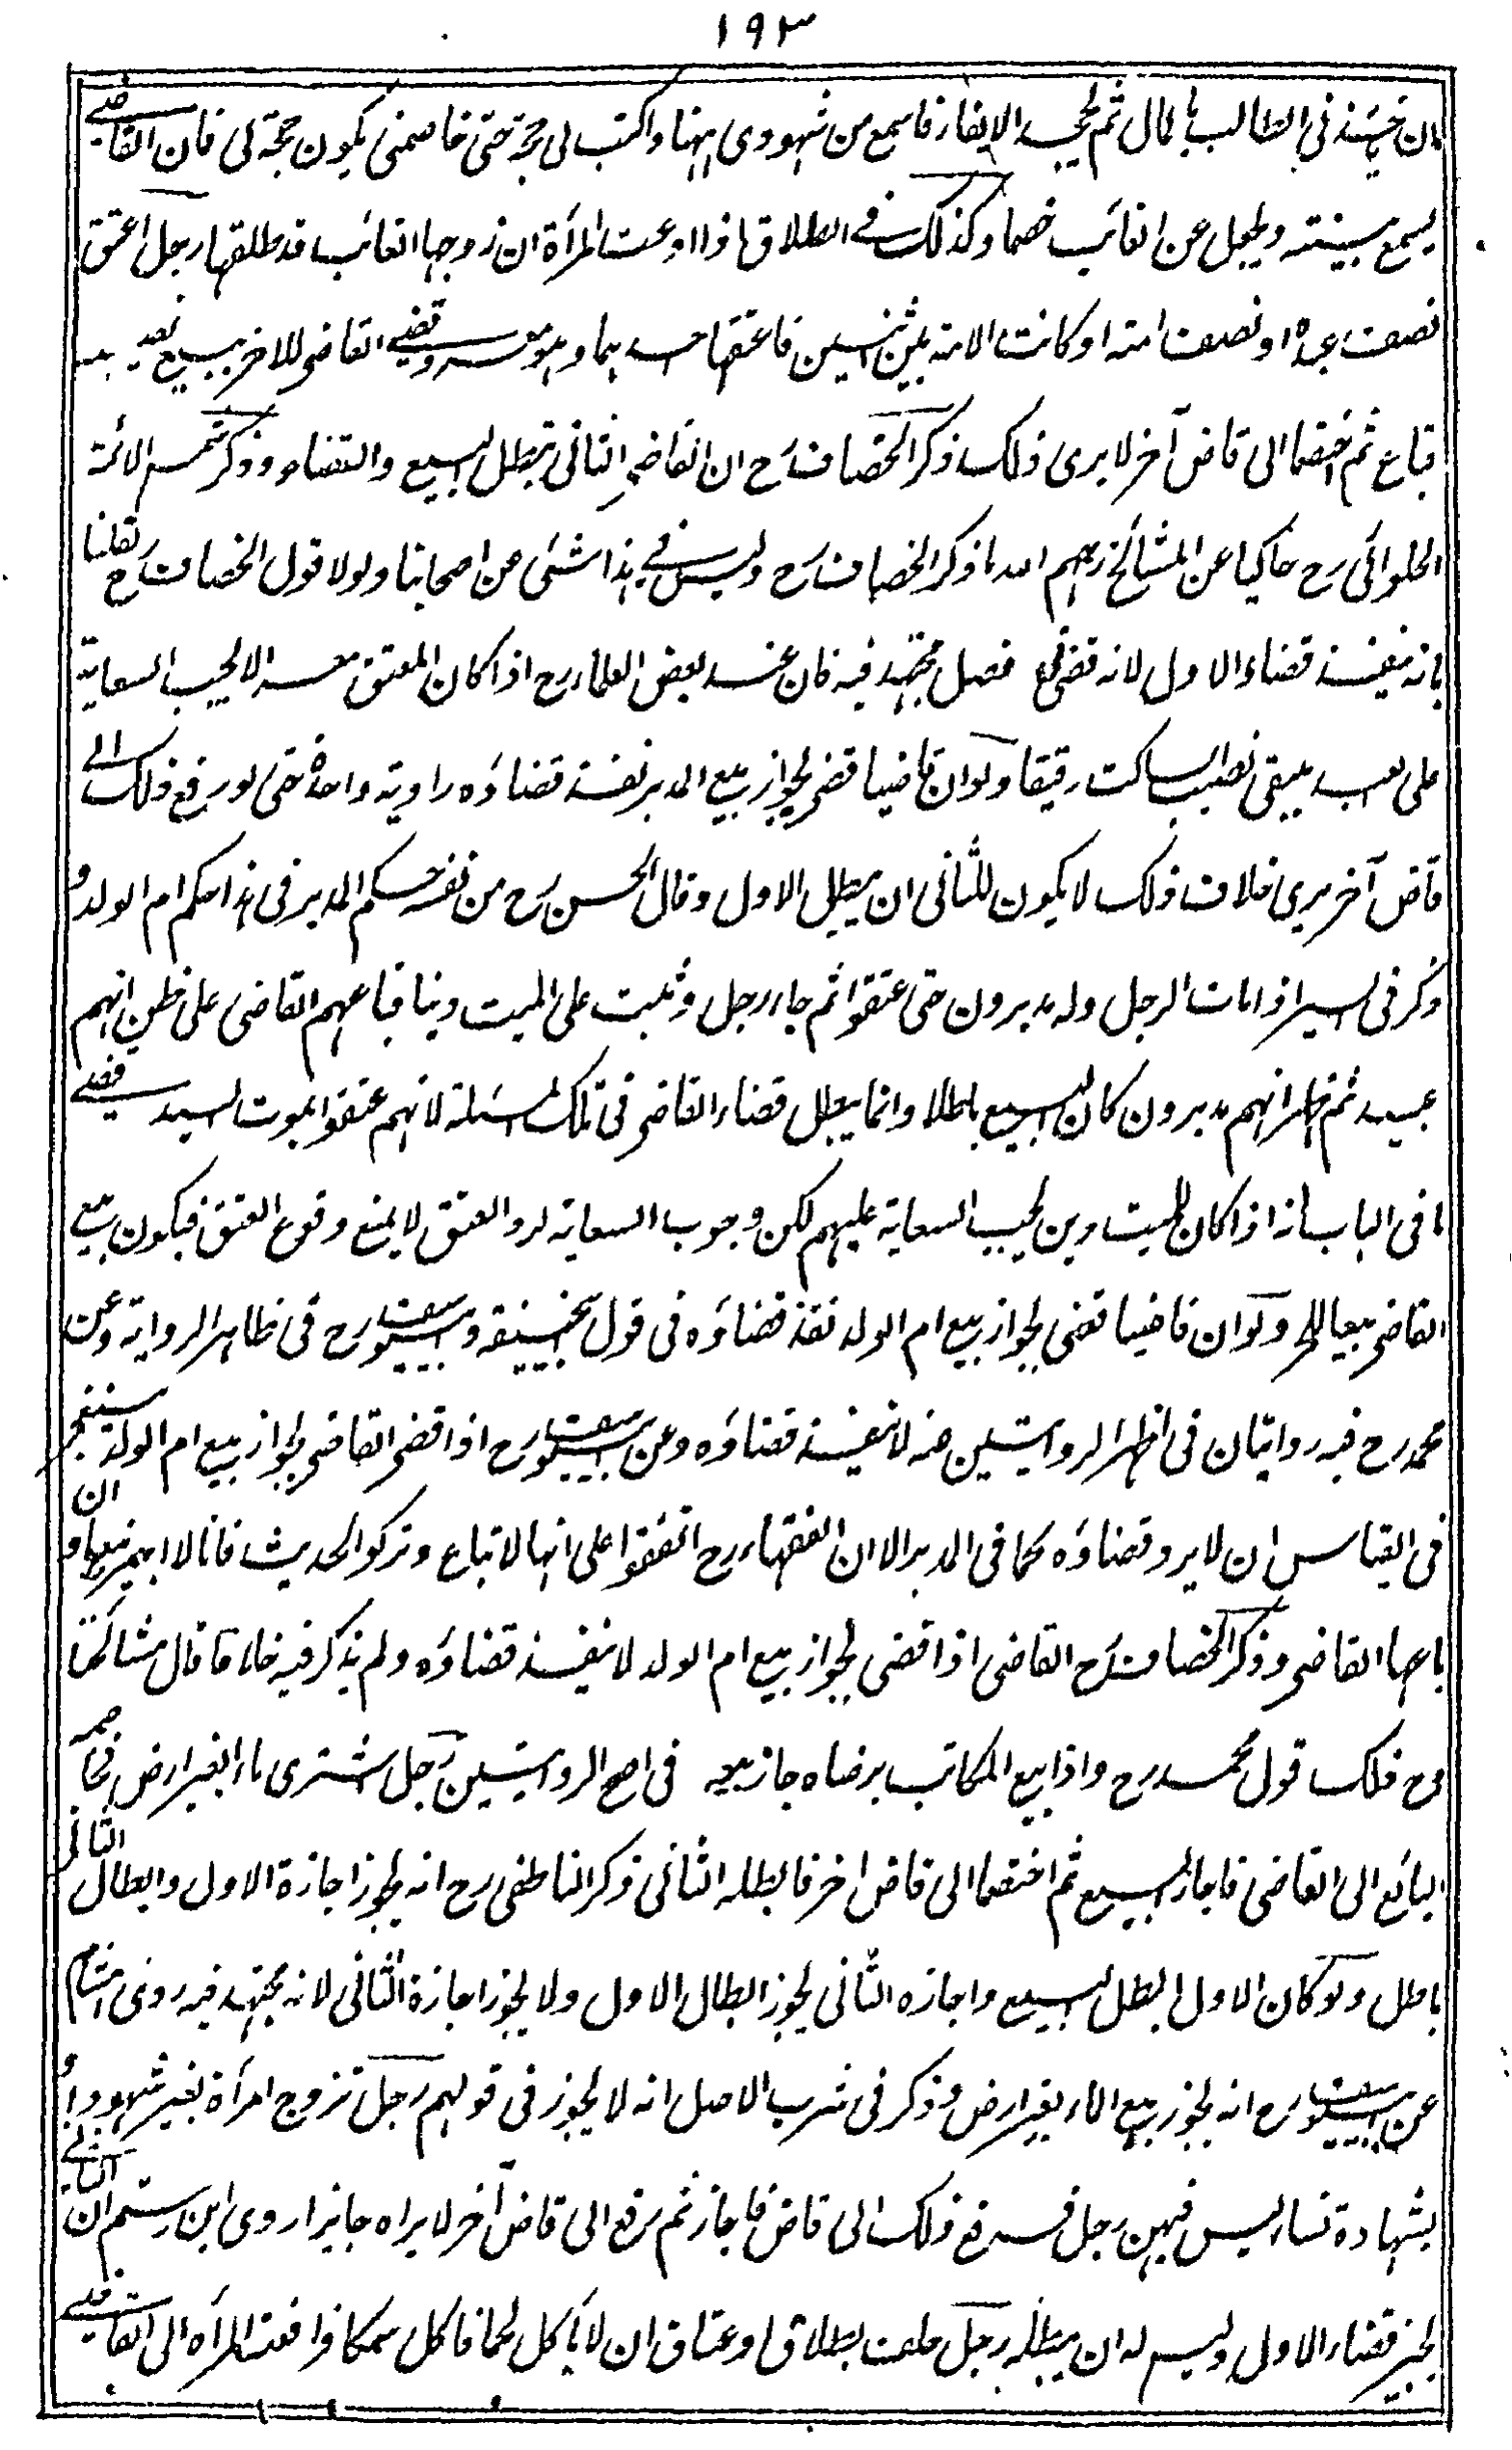 ١٩٣
ان خيتند فى الطالب بالمال ثم يجحد الايفاء فاسمع من شهودى ههنا واكتب لى حجة حتى خاصمنى يكون حجة لى فان القاضي
يسمع بينته ويجعل عن الغائب خصما وكذلك في الطلاق اذا ادعت المرأة ان زوجها الغائب قد طلقها رجل اعتق
نصف عبده او نصف امته او كانت الامة بين اثنين فاعتقها احدهما وهو معسر وقضي القاضى للآخر ببيع نصيبه
فباع ثم اختصما الى قاض آخر لا يرى ذلك ذكر الخصاف رح ان القاضى الثانى يبطل البيع والقضاء وذكر شمس الائمة
الحلوائى رح حاكيا عن المشائخ رحمهم الله ما ذكر الخصاف رح وليس في هذا شئ عن اصحابنا ولولا قول الخصاف رح لقلنا
بانه ينفذ قضاء الاول لانه قضى فى فصل مجتهد فيه فان عند بعض العلماء رح اذا كان المعتق معسرا لا يجب السعاية
على العبد يبقى نصيب الساكت رقيقا ولو ان قاضيا قضى بجواز بيع المدبر نفذ قضاؤه رواية واحدة حتى لو رفع ذلك الى
قاض آخر يرى خلاف ذلك لا يكون للثانى ان يبطل الاول وقال الحسن رح من نفسه حكم المدبر فى هذا حكم ام الولد و
ذكر فى السير اذا مات الرجل وله مدبرون حتى عتقوا ثم جاء رجل وثبت على الميت دينا فباعهم القاضى على ظن انهم
عبيد ثم ظهر انهم مدبرون كان البيع باطلا وانما يبطل قضاء القاضى فى تلك المسئلة لانهم عتقوا بموت السيد قضي
ما فى الباب انه اذا كان للميت دين يجب السعاية عليهم لكن وجوب السعاية لرد العتق لا يمنع وقوع العتق فيكون بيع
القاضى بيعا للحر ولو ان قاضيا قضى بجواز بيع ام الولد نفذ قضاؤه فى قول ابيحنيفة وابييوسف رح فى ظاهر الرواية وعن
محمد رح فيه روايتان فى اظهر الروايتين عنه لا ينفذ قضاؤه وعن ابييوسف رح اذا قضى القاضى بجواز بيع ام الولد ينبغى ان
فى القياس ان لا يرد قضاؤه كما فى المدبر الا ان الفقهاء رح اتفقوا على انها لا تباع وتركوا الحديث فانا لا اجيز بيعها و
باعها القاضى وذكر الخصاف رح القاضى اذا قضى بجواز بيع ام الولد لا ينفذ قضاؤه ولم يذكر فيه خلافا قال مشائخنا
رح ذلك قول محمد رح واذا بيع المكاتب برضاه جاز بيعه فى اصح الروايتين رجل اشترى ماء بغير ارض فخاصمه
البائع الى القاضى فاجاز البيع ثم اختصما الى قاض آخر فابطله الثانى ذكر الناطفى رح انه يجوز اجازة الاول وابطال الثانى
باطل ولو كان الاول ابطل البيع واجازه الثانى يجوز ابطال الاول ولا يجوز اجازة الثانى لانه مجتهد فيه روى هشام
عن ابييوسف رح انه يجوز بيع الماء بغير ارض وذكر فى شرب الاصل انه لا يجوز فى قولهم رجل تزوج امرأة بغير شهود او
بشهادة نساء ليس فيهن رجل فرفع ذلك الى قاض فاجاز ثم رفع الى قاض آخر لا يراه جايزا روى ابن رستم ان الثاني
يجيز قضاء الاول وليس له ان يبطله رجل حلف بطلاق او عتاق ان لا يأكل لحما فاكل سمكا فرافعت المرأة الى القاضي